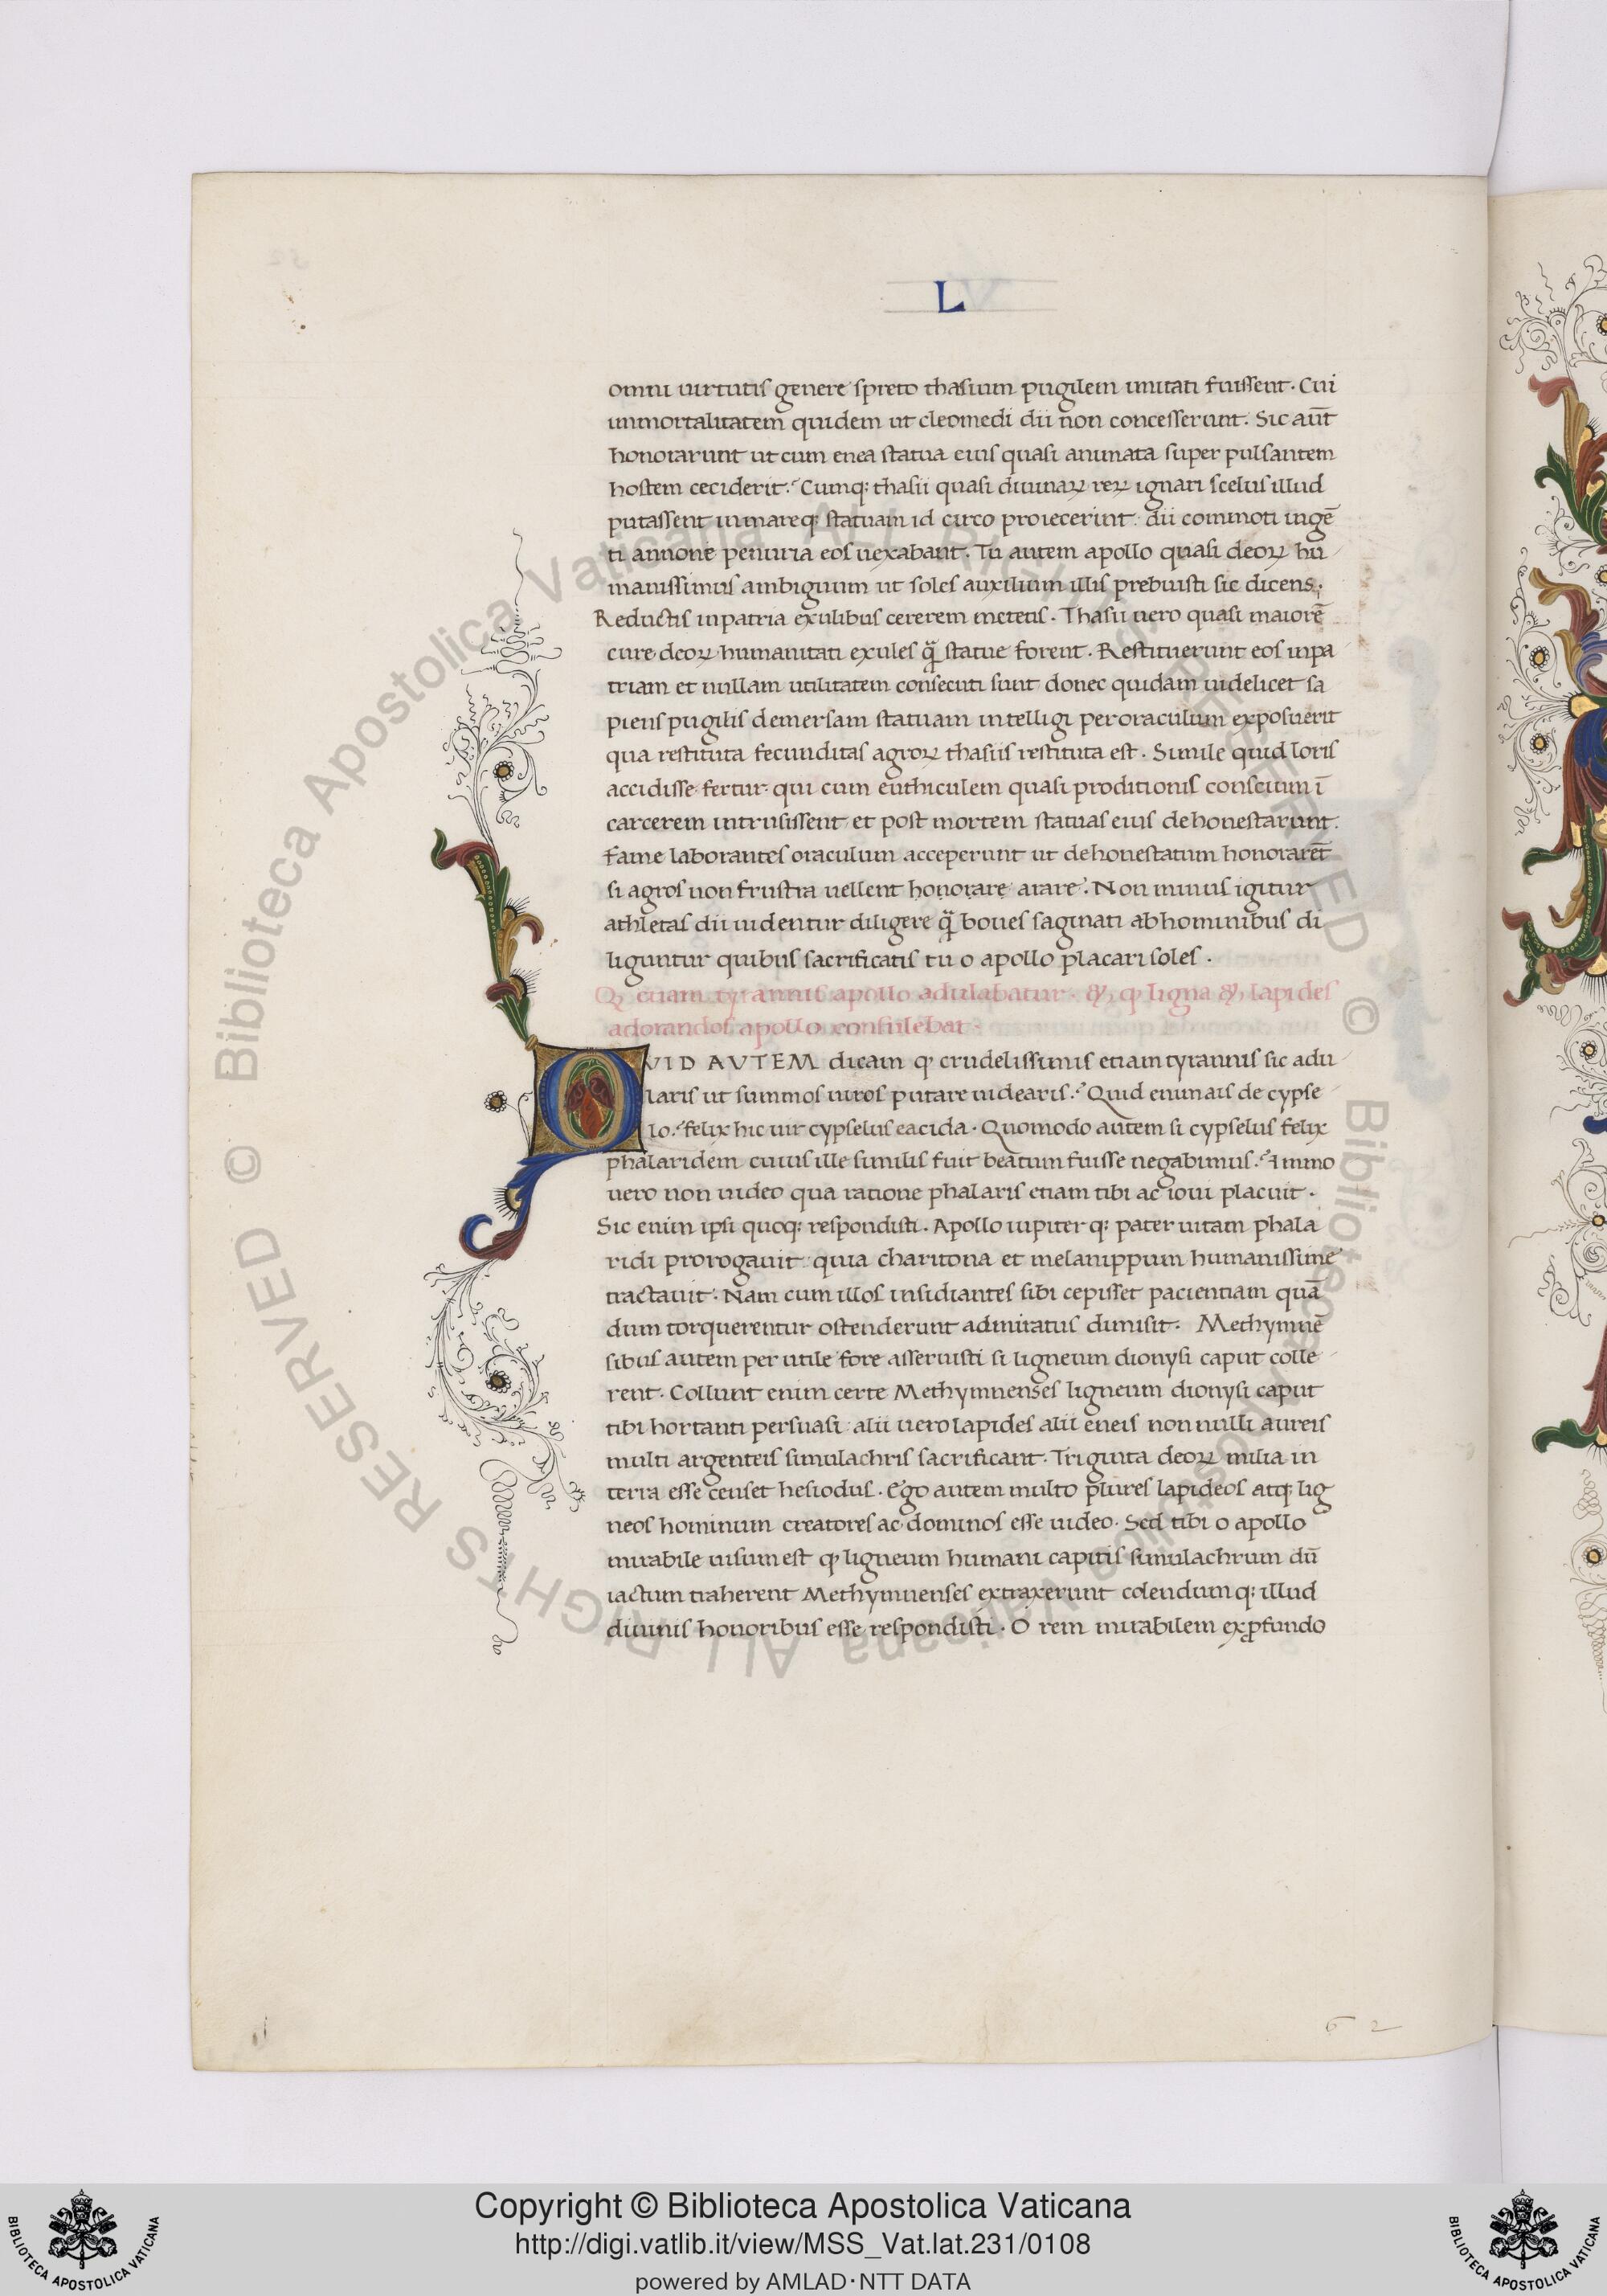 L
omni uirtutis genere spreto thasium pugilem imitati fuissent. Cui
immortalitatem quidem ut cleomedi dii non concesserunt. Sic aūt
honorarunt ut cum enea statua eius quasi animata super pulsantem
hostem ceciderit. Cumq: thasii quasi diuinaꝝ reꝝ ignari scelus illud
putassent in mareq: statuam id circo proiecerint: dii commoti ingē
ti annone penuria eos uexabant. Tu autem apollo quasi deoꝝ hu
manissimus ambiguum ut soles auxilium illis prebuisti sic dicens.
Reductis in patria exulibus cererem metetis. Thasii uero quasi maiorē
cure deoꝝ humanitati exules q̄ statue forent. Restituerunt eos in pa
triam et nullam utilitatem consecuti sunt donec quidam uidelicet sa
piens pugilis demersam statuam intelligi per oraculum exposuerit
qua restituta fecunditas agroꝝ thasiis restituta est. Simile quid loris
accidisse fertur: qui cum euthiculem quasi proditionis conscium ī
carcerem intrusissent et post mortem statuas eius dehonestarunt.
fame laborantes oraculum acceperunt ut dehonestatum honorarēt
si agros non frustra uellent honorare arare. Non minus igitur
athletas dii uidentur diligere q̄ boues saginati ab hominibus di
liguntur quibus sacrificatis tu o apollo placari soles.
Q etiam tyrannis apollo adulabatur. & ꝙ ligna & lapides
adorandos apollo consulebat.
QVID AVTEM dicam ꝙ crudelissimis etiam tyrannis sic adu
laris ut summos uiros putare uidearis. Quid enim ais de cypse
lo. felix hic uir cypselus eacida. Quomodo autem si cypselus felix
phalaridem cuius ille similis fuit beatum fuisse negabimus. Immo
uero non uideo qua ratione phalaris etiam tibi ac ioui placuit.
Sic enim ipsi quoq: respondisti. Apollo iupiter q: pater uitam phala
ridi prorogauit: quia charitona et melanippum humanissime
tractauit. Nam cum illos insidiantes sibi cepisset pacientiam quā
dum torquerentur ostenderunt admiratus dimisit. Methymnē
sibus autem per utile fore asseruisti si ligneum dionysi caput colle
rent. Collunt enim certe Methymnenses ligneum dionysi caput
tibi hortanti persuasi: alii uero lapides alii eneis non nulli aureis
multi argenteis simulachris sacrificant. Triginta deoꝝ milia in
terra esse censet hesiodus. Ego autem multo plures lapideos atq: lig
neos hominum creatores ac dominos esse uideo. Sed tibi o apollo
mirabile uisum est ꝙ ligneum humani capitis simulachrum dū
iactum traherent Methymnenses extraxerunt colendum q: illud
diuinis honoribus esse respondisti. O rem mirabilem ex ꝓfundo
62
© Biblioteca Apostolica Vaticana ALL RIGHTS RESERVED © Biblioteca Apostolica Vaticana ALL RIGHTS RESERVED
Copyright © Biblioteca Apostolica Vaticana
http://digi.vatlib.it/view/MSS_Vat.lat.231/0108
powered by AMLAD·NTT DATA
BIBLIOTECA APOSTOLICA VATICANA
BIBLIOTECA APOSTOLICA VATICANA